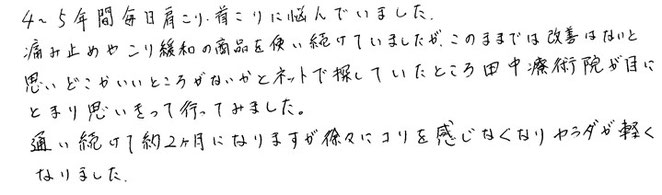 4～5年間毎日肩こり、首こりに悩んでいました。
痛み止めやコリ緩和の商品を使い続けていましたが、このままでは改善はないと
思いどこかいいところがないかとネットで探していたところ田中療術院が目に
とまり思いきって行ってみました。
通い続けて約2ヶ月になりますが徐々にコリを感じなくなりカラダが軽く
なりました。